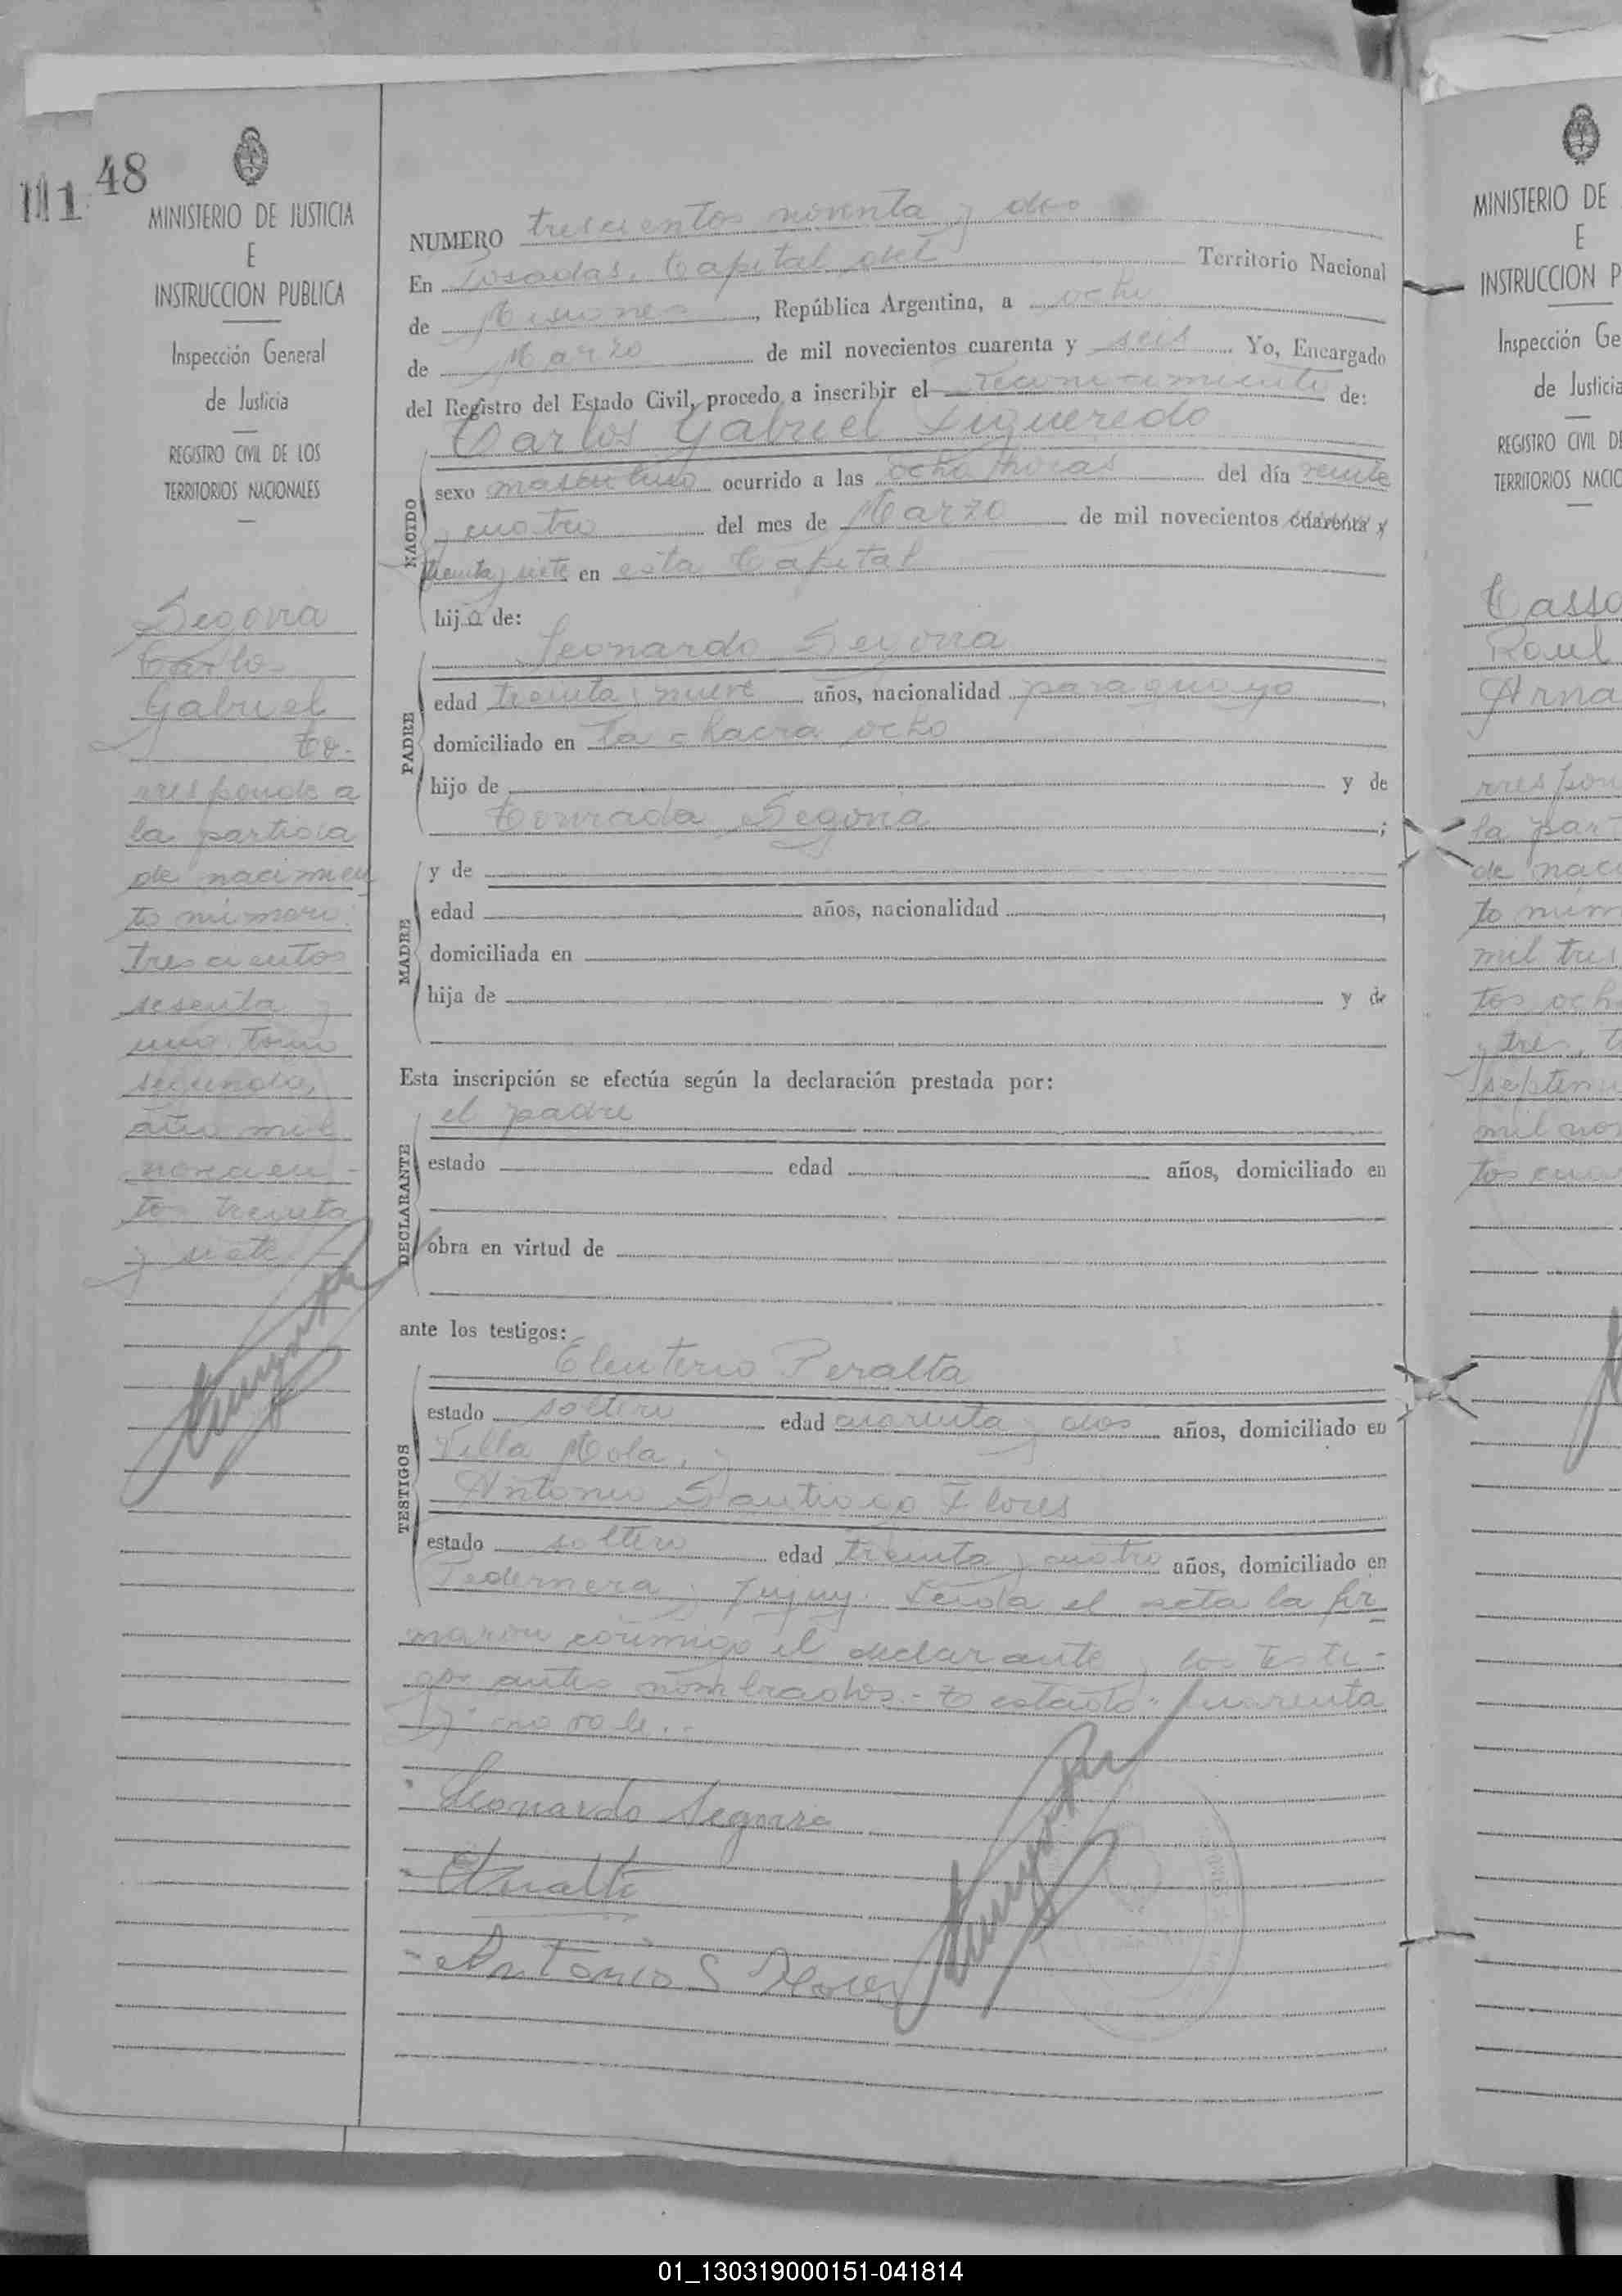 48
MINISTERIO DE JUSTICIA
E
INSTRUCCION PUBLICA
Inspección General
de Justicia
REGISTRO CIVIL DE LOS
TERRITORIOS NACIONALES
Segovia
Carlos
Gabriel
Co-
rresponde a
la partida
de nacimien
to número
trescientos
sesenta y
uno tomo
segundo,
año mil
novecien-
tos treinta
y siete.-
NUMERO trescientos noventa y dos
En Posadas, Capital del Territorio Nacional
de Misiones, República Argentina, a ocho
de Marzo de mil novecientos cuarenta y seis Yo, Encargado
del Registro del Estado Civil, procedo a inscribir el reconocimiento de:
Carlos Gabriel Figueredo
NACIDO
sexo masculino ocurrido a las ocho horas del día veinte
y cuatro del mes de Marzo de mil novecientos cuarenta y
treinta y siete en esta Capital
hijo de:
Leonardo Segovia
PADRE
edad treinta y nueve años, nacionalidad paraguayo,
domiciliado en la chacra ocho
hijo de y de
Conrada Segovia;
MADRE
y de
edad años, nacionalidad,
domiciliada en
hija de y de
Esta inscripción se efectúa según la declaración prestada por:
el padre
DECLARANTE
estado edad años, domiciliado en
obra en virtud de
ante los testigos:
Eleuterio Peralta
TESTIGOS
estado soltero edad cuarenta y dos años, domiciliado en
Villa Mola, y
Antonio Santiago Flores
estado soltero edad treinta y cuatro años, domiciliado en
Pedernera y Jujuy. Leida el acta la fir
maron conmigo el declarante y los testi-
gos antes nombrados.- testado: cuarenta
y: no vale.-
Leonardo Segovia
EPeralta
Antonio S Flores
MINISTERIO DE
E
INSTRUCCION P
Inspección Ge
de Justicia
REGISTRO CIVIL DE
TERRITORIOS NACIO
Casso
Raul
Arma
rrespon
la par
de naci
to núm
mil tres
tos och
y tres, t
septim
mil nov
tos cua
01_130319000151-041814